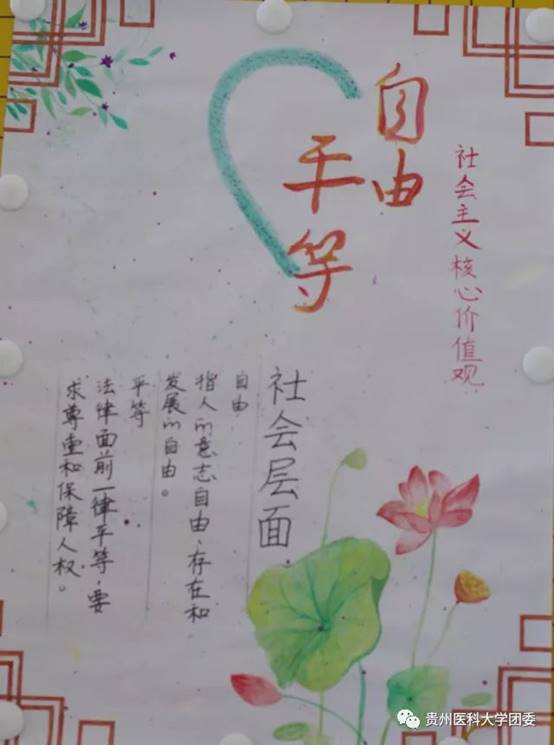 社会主义核心价值观
自由
平等
社会层面.
自由
指人的意志自由、存在和
发展的自由。
平等
法律面前一律平等,要
求尊重和保障人权。
贵州医科大学团委